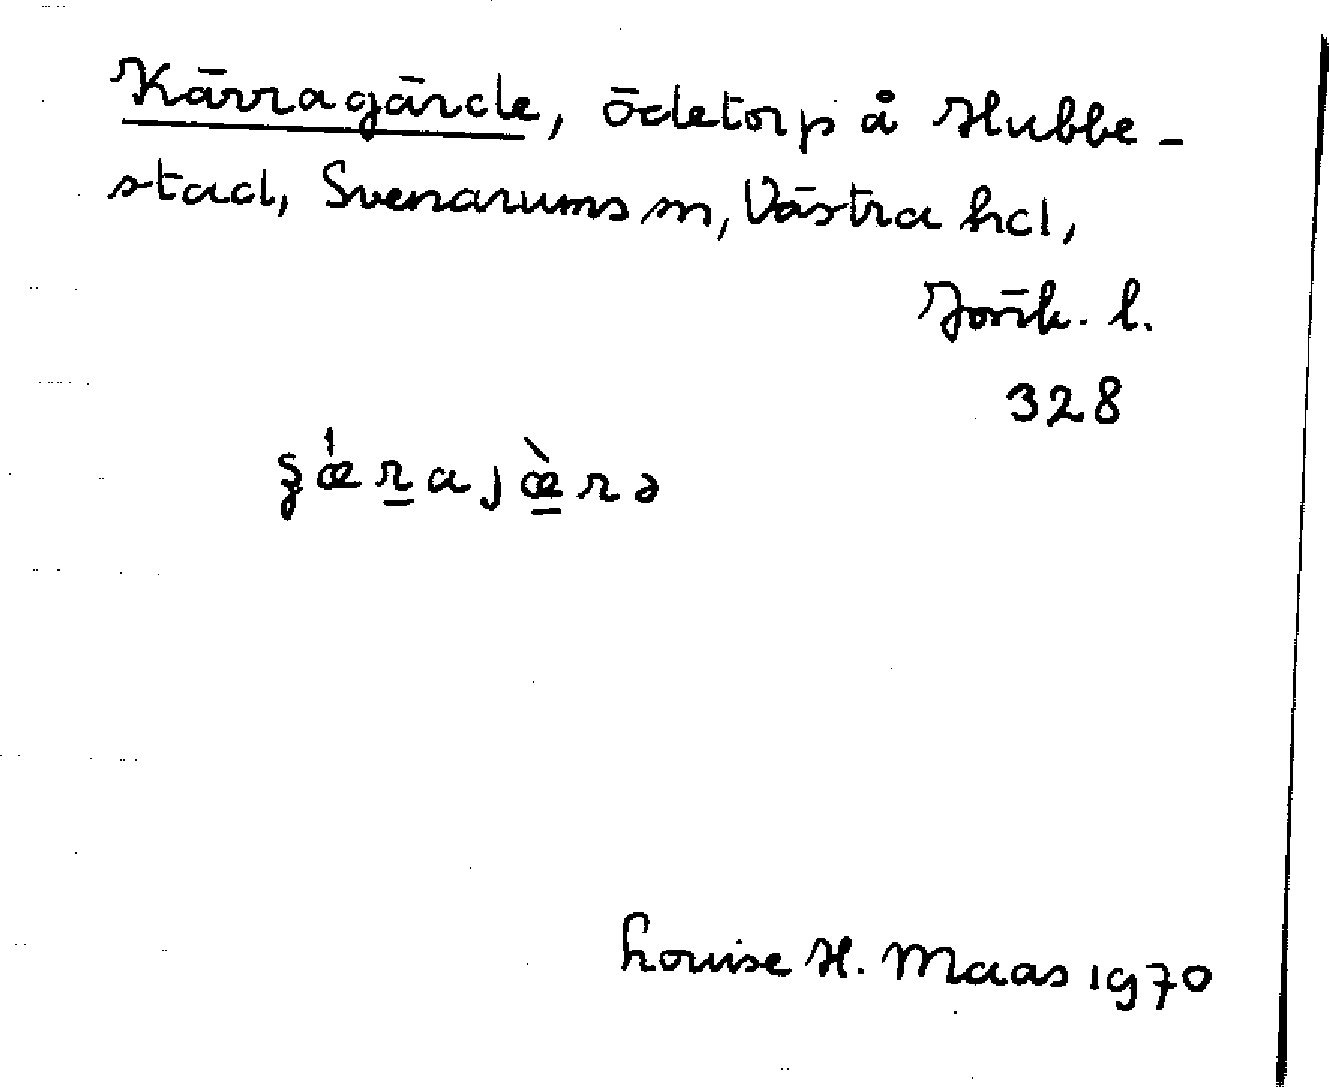 Kärragärde, ödetorp å Hubbe-
stad, Svenarums sn, Västra hd,
Jönk. l.
328
Louise H. Maas 1970